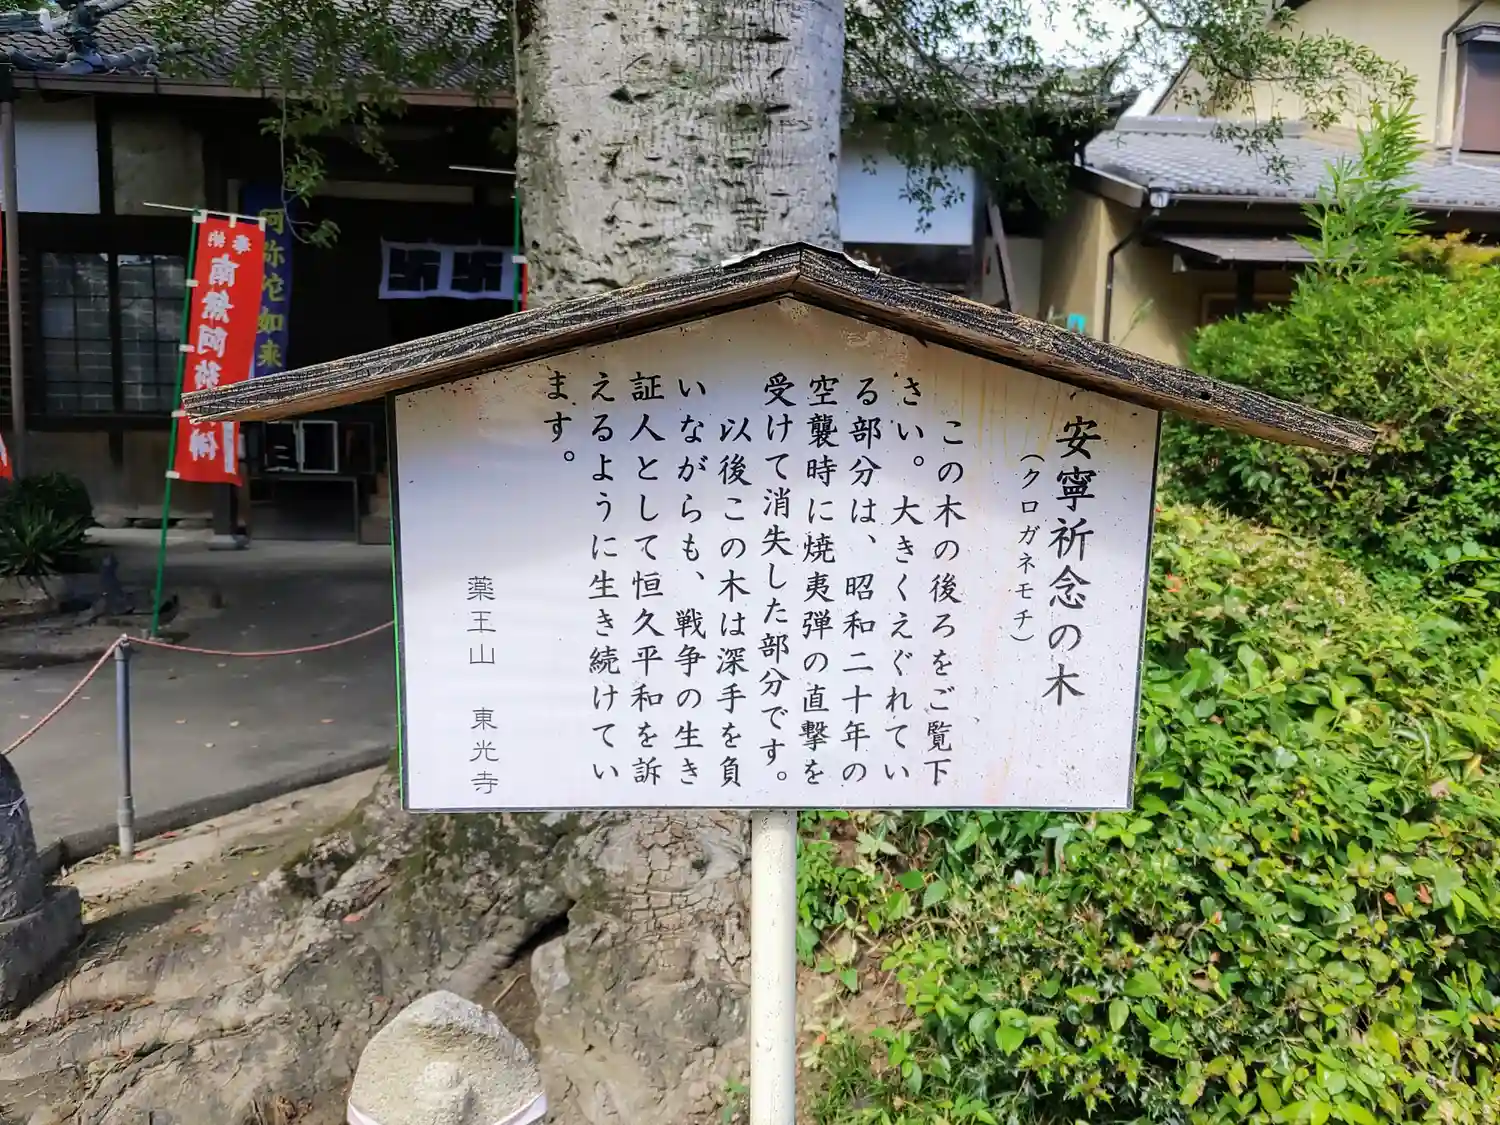 安寧祈念の木
（クロガネモチ）
この木の後ろをご覧下
さい。大きくえぐれてい
る部分は、昭和二十年の
空襲時に焼夷弾の直撃を
受けて消失した部分です。
以後この木は深手を負
いながらも、戦争の生き
証人として恒久平和を訴
えるように生き続けてい
ます。
薬王山 東光寺
阿弥陀如来
奉納
南無阿弥陀佛